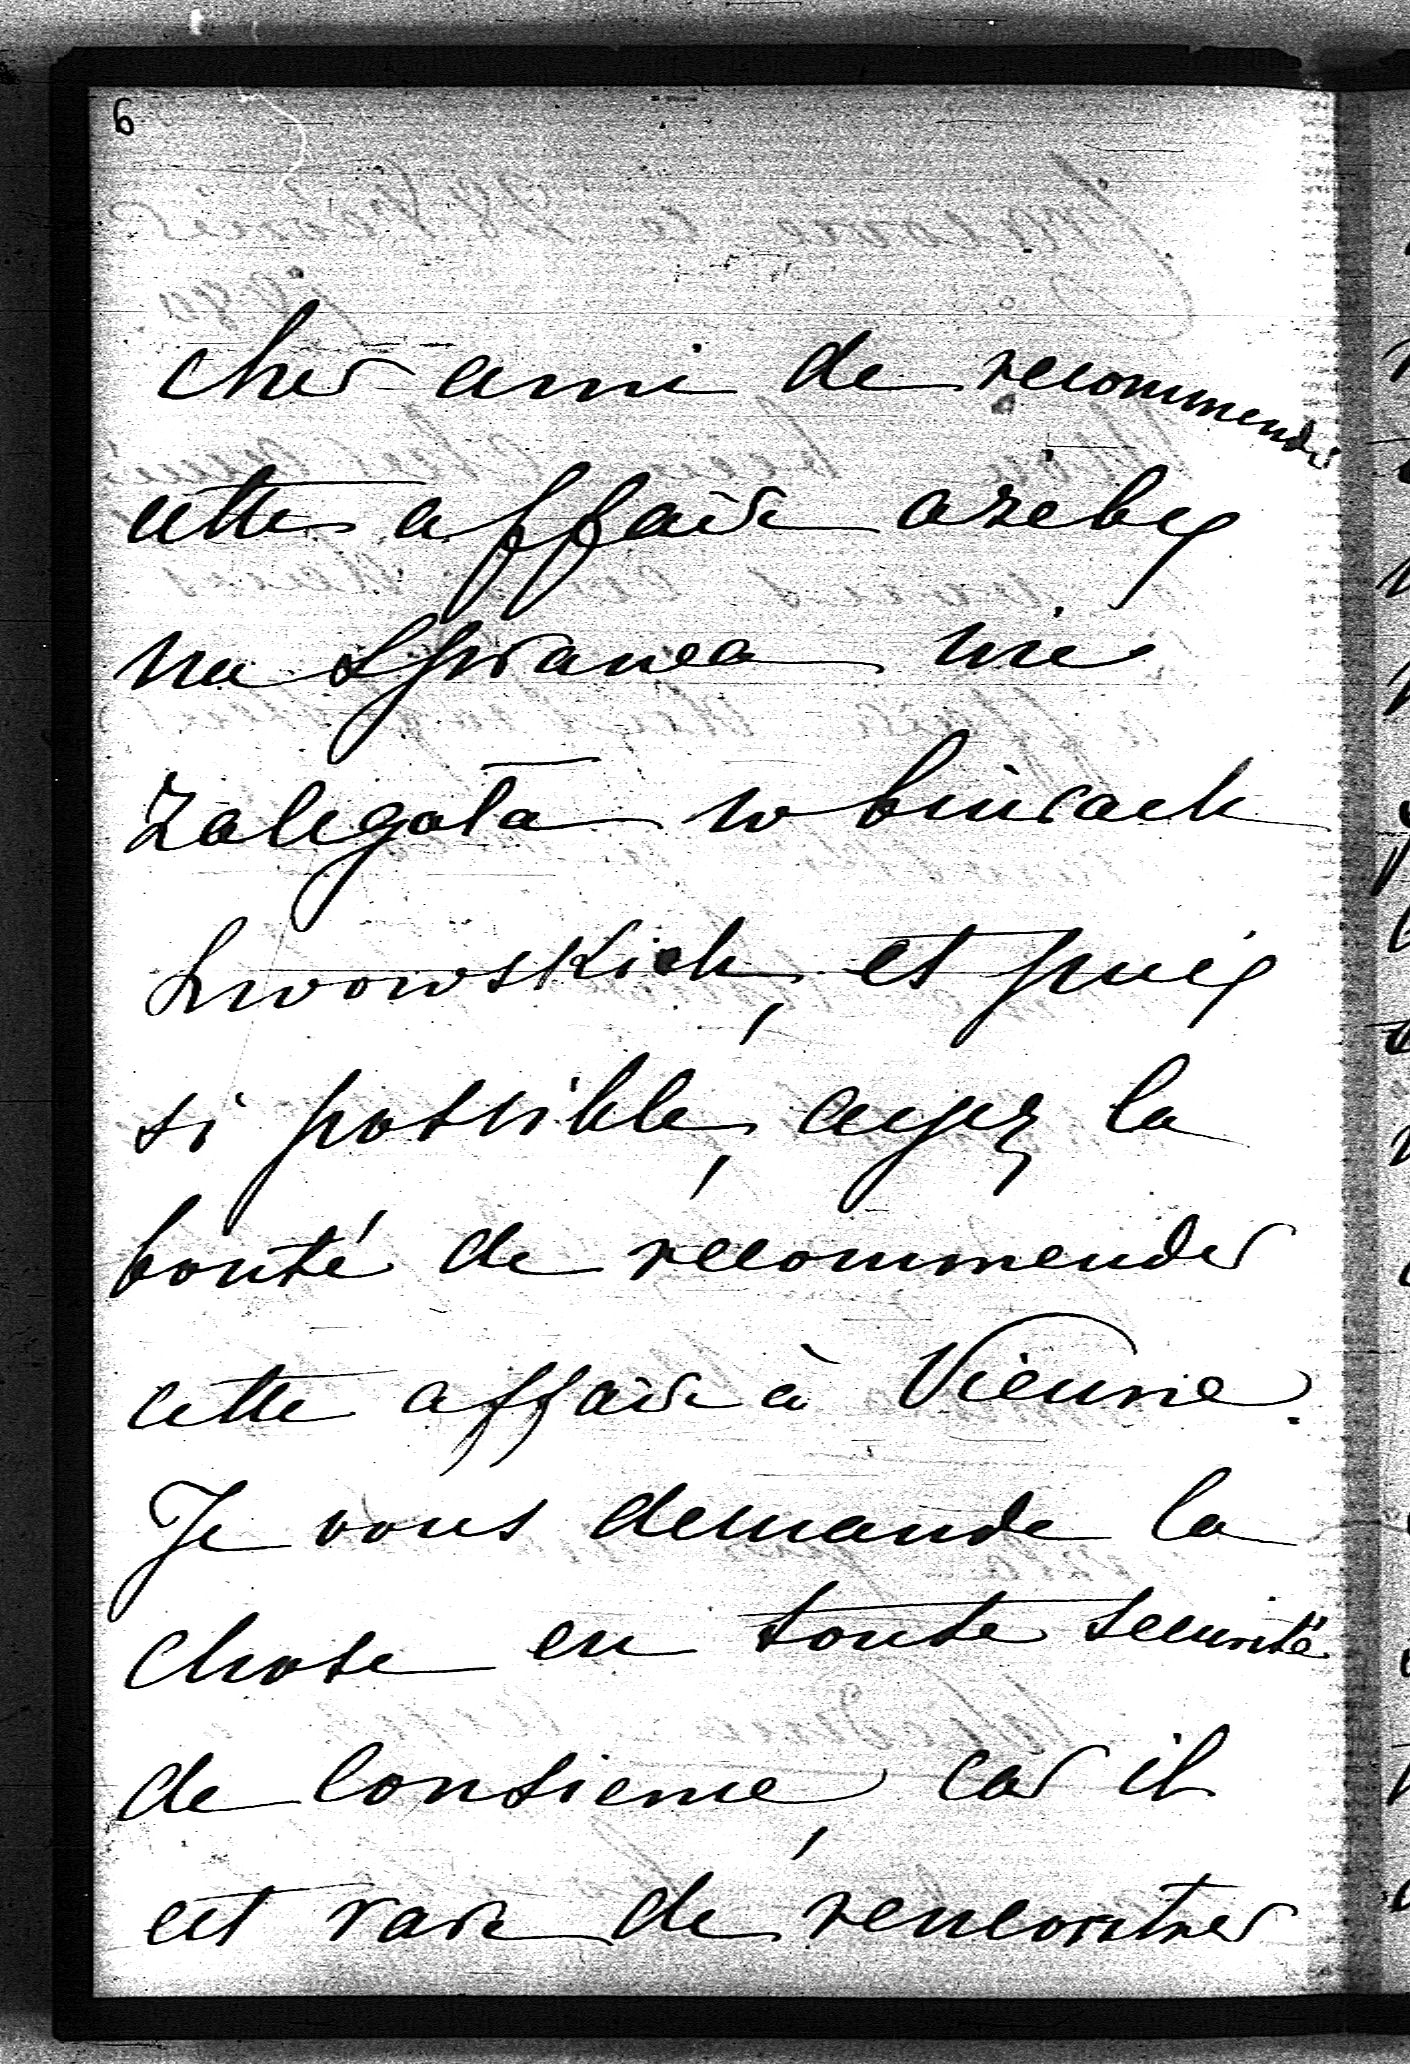 6
cher ami de recommender
cette affaire ażeby
ta sprawa nie
zalegała w biurach
Lwowskich, et puis
si possible, ayez la
bonté de recommender
cette affaire à Vienne.
Je vous demande la
chose en toute securité
de consience, car il
est rare de rencontrer